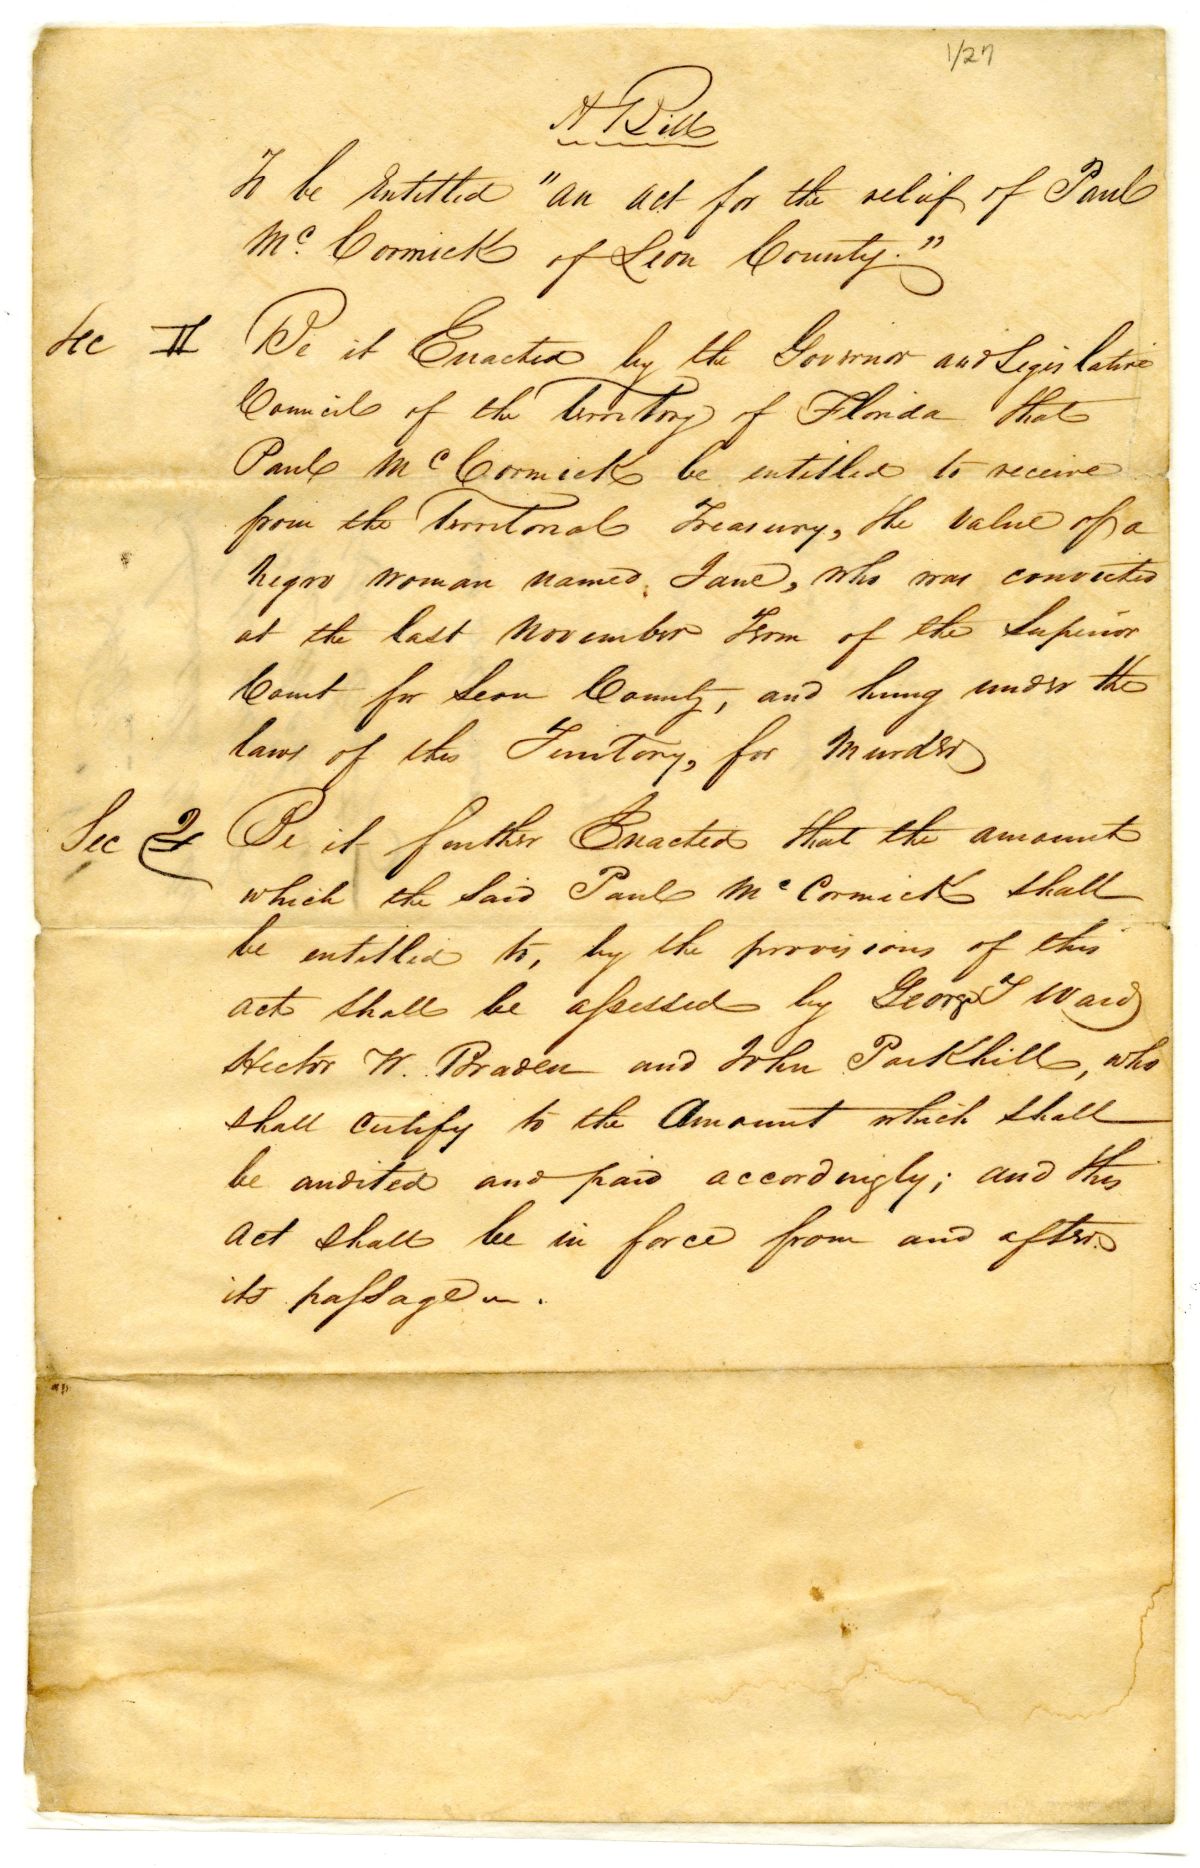 1/27
A Bill
To be Entitled "an act for the relief of Paul
Mc. Cormick of Leon County."
Sec 1 Be it Enacted by the Governor and Legislative
Council of the Territory of Florida that
Paul Mc Cormick be entitled to receive
from the Territorial Treasury, the value of a
negro woman named Jane, who was convicted
at the last November Term of the Superior
Court for Leon County, and hung under the
laws of this Territory, for Murder
Sec 2 Be it further Enacted that the amount
which the said Paul Mc Cormick shall
be entitled to, by the provisions of this
act shall be assessed by George T Ward
Hector W. Braden and John Parkhill, who
shall certify to the Amount which shall
be audited and paid accordingly; and this
act shall be in force from and after
its passage.